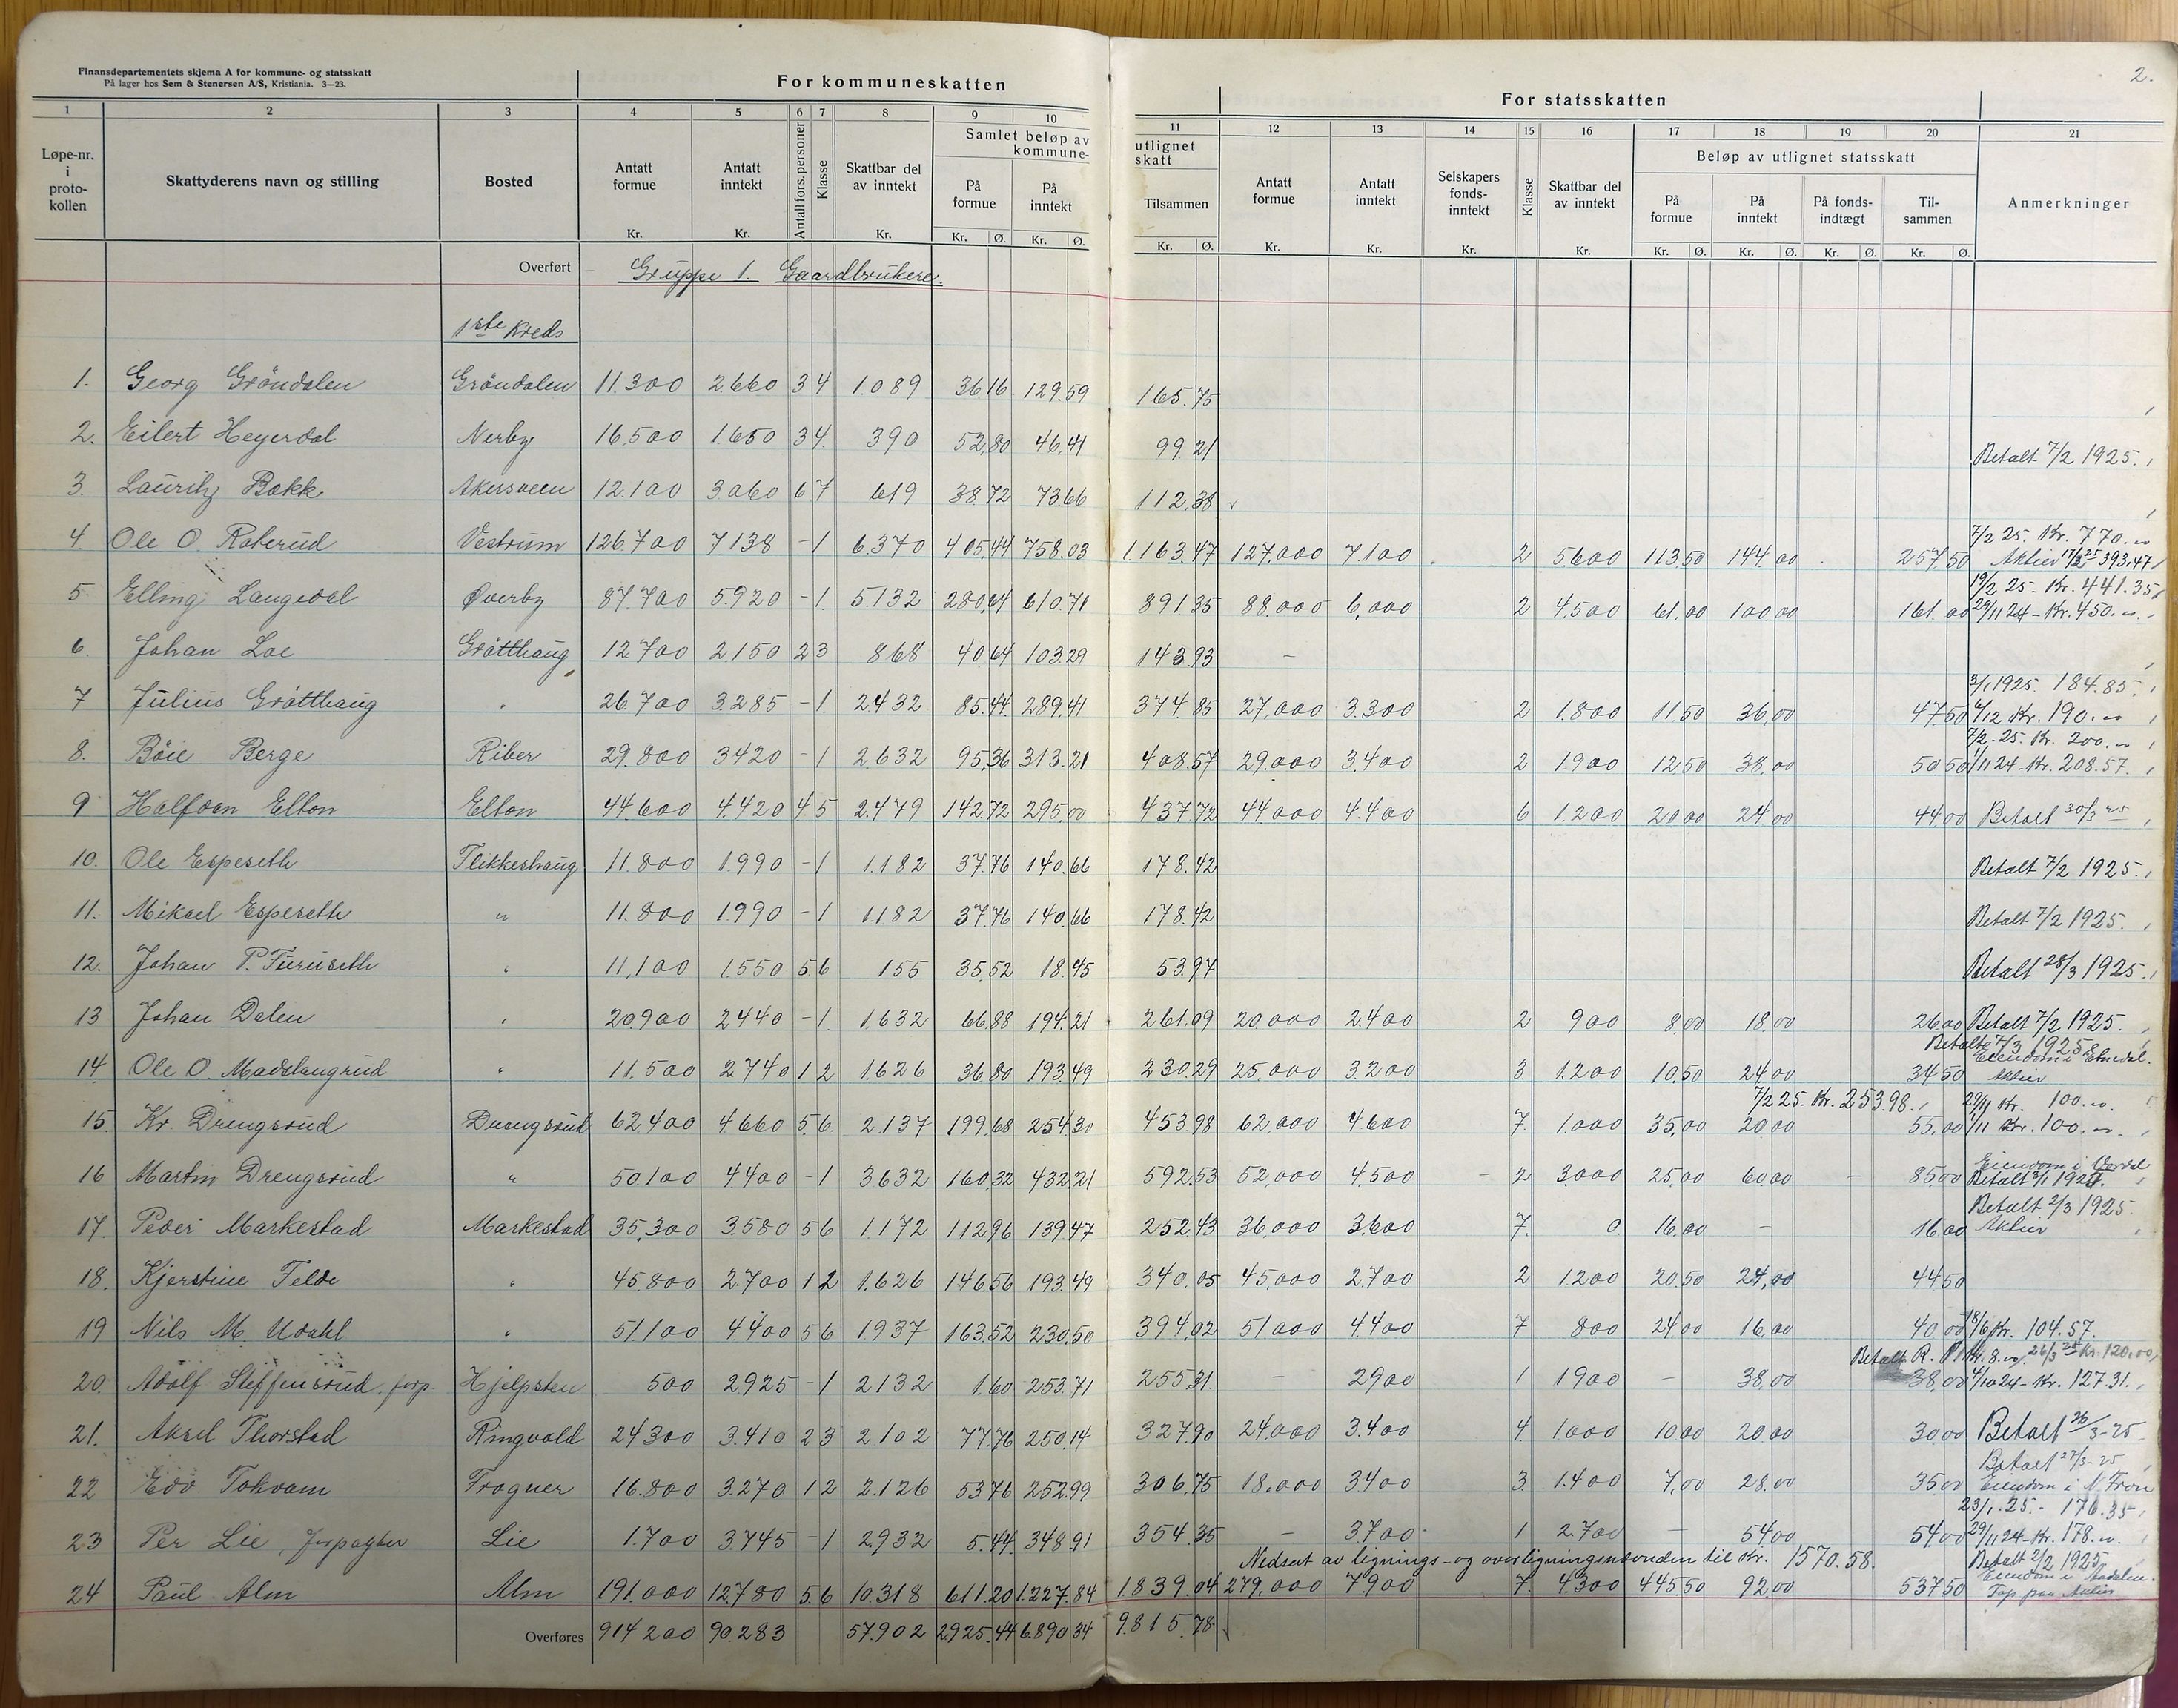 2.
Finansdepartementets skjema A for kommune- og statsskatt
På lager hos Sem & Stenersen A/S, Kristiania. 3—23.
For kommuneskatten
For statsskatten
1 2 3 4 5 6 7 8 9 10 11 12 13 14 15 16 17 18 19 20 21
Løpe-nr. i proto-kollen
Skattyderens navn og stilling
Bosted
Antatt formue Kr.
Antatt inntekt Kr.
Antall fors. personer
Klasse
Skattbar del av inntekt Kr.
Samlet beløp av kommune-
På formue Kr. Ø.
På inntekt Kr. Ø.
utlignet skatt
Tilsammen Kr. Ø.
Antatt formue Kr.
Antatt inntekt Kr.
Selskapers fonds-inntekt Kr.
Klasse
Skattbar del av inntekt Kr.
Beløp av utlignet statsskatt
På formue Kr. Ø.
På inntekt Kr. Ø.
På fonds-indtægt Kr. Ø.
Til-sammen Kr. Ø.
Anmerkninger
Overført Gruppe 1. Gaardbrukere.
1ste Kreds
1. Georg Gröndalen Gröndalen 11.300 2.660 3 4 1.089 36 16 129.59 165.75
2. Eilert Heyerdal Nerby 16.500 1.650 3 4. 390 52,80 46.41 99.21 Betalt 7/2 1925.
3. Lauritz Bakk Akersveen 12.100 3.060 6 7 619 38.72 73.66 112.38
7/2 25. Kr. 770.00
4. Ole O. Raterud Vestrum 126.700 7138 - 1 6.370 405.44 758.03 1.163.47 127.000 7.100 2 5600 113,50 144.00 257.50 Aktier 393.47
19/2 25 - Kr. 441.35
5 Elling Langedal Øverby 87.700 5.920 - 1 5.132 280,64 610.71 891.35 88.000 6,000 2 4,500 61,00 100,00 161.00 29/11 24 - Kr. 450.00
6. Johan Loe Gråtthaug 12.700 2.150 2 3 868 40,64 103.29 143.93 -
3/1 1925. 184.85.
7 Julius Gråtthaug " 26.700 3.285 - 1 2432 85.44 289.41 374.85 27,000 3.300 2 1.800 11.50 36,00 47.50 4/12 Kr. 190.00
7/2 - 25. Kr. 200.00
8. Böie Berge Riber 29.800 3420 - 1 2.632 95,36 313.21 408.57 29.000 3.400 2 1900 12,50 38,00 50 50 1/11 24 - Kr. 208.57.
9 Halfdan Elton Elton 44.600 4.420 4 5 2.479 142.72 295,00 437.72 44.000 4.400 6 1.200 20.00 24,00 44,00 Betalt 30/3 25
10. Ole Espeseth Flikkeshaug 11.800 1.990 - 1 1.182 37.76 140.66 178.42 Betalt 7/2 1925.
11. Mikael Espeseth " 11.800 1.990 - 1 1.182 37.76 140.66 178.42 Betalt 7/2 1925.
12. Johan P. Furuseth " 11,100 1.550 5 6 155 35.52 18.45 53.97 Betalt 28/3 1925.
13 Johan Dalen " 20.900 2440 - 1. 1.632 66.88 194.21 261.09 20,000 2.400 2 900 8,00 18.00 26.00 Betalt 7/2 1925.
Betalt 7/3 1925
14 Ole O. Madslangrud " 11.500 2.740 1 2 1.626 36.80 193.49 230.29 25,000 3.200 3. 1.200 10.50 24.00 34 50 Eiendom i Etnedal. Aktier
7/2 25. Kr. 253.98. 29/11 Kr. 100.00.
15. Kr. Drengsrud Drengsrud 62.400 4.660 5 6. 2.137 199,68 254.30 453.98 62,000 4.600 7. 1.000 35,00 20.00 55,00 1/11 Kr. 100.00
16 Martin Drengsrud " 50.100 4.400 - 1 3.632 160.32 432.21 592.53 52,000 4.500 - 2 3,000 25,00 60.00 - 85.00 Eiendom i Betalt
Betalt 2/3 1925.
17. Peder Markestad Markestad 35,300 3.580 5 6 1.172 112.96 139.47 252.43 36,000 3.600 7. 0. 16.00 - 16.00 Aktier
18. Kjerstine Felde " 45.800 2.700 1 2 1.626 146.56 193.49 340.05 45,000 2.700 2 1200 20.50 24,00 44.50
19 Nils M. Udahl " 51.100 4400 5 6 1937 163.52 230.50 394,02 51000 4.400 7 800 24.00 16,00 40 00 18/6 Kr. 104.57.
Betalt R. Kr. 8.00 26/3 25 Kr. 120.00
20. Adolf Steffensrud forp. Hjelpsten 500 2925 - 1 2132 1.60 253.71 255.31. - 2900 1 1900 - 38,00 38,00 4/10 24 - Kr. 127.31.
21. Aksel Thorstad Ringvold 24300 3.410 2 3 2102 77.76 250.14 327.90 24.000 3.400 4. 1000 10.00 20.00 30.00 Betalt 26/3-25
Betalt 27/3-25
22 Edv. Tokvam Frogner 16.800 3.270 1 2 2.126 53.76 252.99 306.75 18,000 3400 3. 1.400 7,00 28.00 35.00 Eiendom i N. Fron
23/1. 25. - 176.35
23 Per Lie, forpagter Lie 1.700 3.745 - 1 2932 5.44 348.91 354.35 - 3700 1 2.700 - 54.00 54.00 29/11 24 - Kr. 178.00
Nedsat av lignings- og overligningsnevnden til Kr. 1570.58. Betalt 2/2 1925
24 Paul Alm Alm 191.000 12.780 5 6 10.318 611.20 1.227.84 1.839.04 279,000 7.900 7. 4.300 445.50 92.00 537.50 Eiendom i Tap paa Aktier
Overføres 914 200 90.283 57.902 2925.44 6.890 34 9.815.78